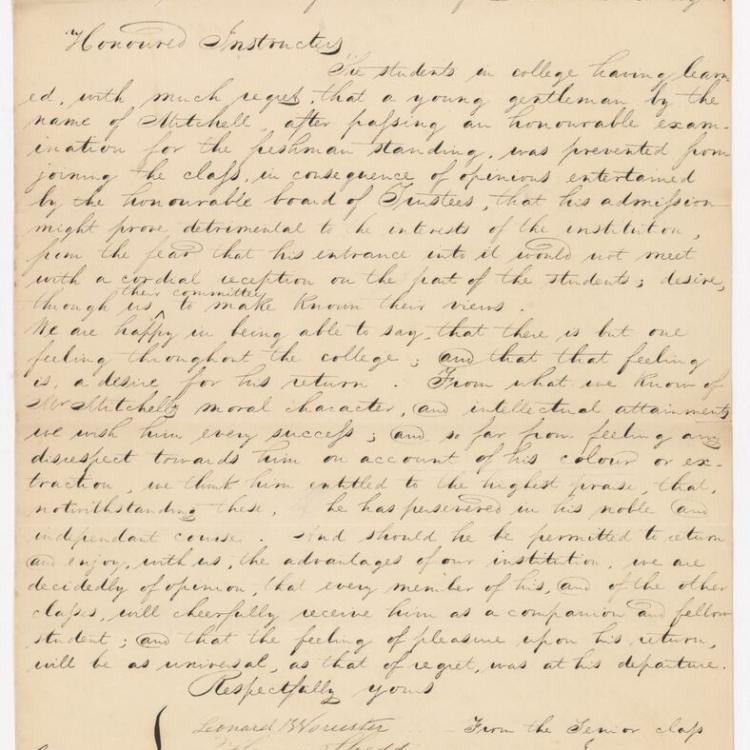 Honoured Instructers,
The students in college having learn-
ed, with much regret, that a young gentleman by the
name of Mitchell, after passing an honourable exam-
ination for the freshman standing, was prevented from
joining the class, in consequence of opinions entertained
by the honourable board of Trustees, that his admission
might prove detrimental to the interests of the institution,
from the fear that his entrance into it would not meet
with a cordial reception on the part of the students; desire,
their committee
through us, ^ to make known their views.
We are happy in being able to say, that there is but one
feeling throughout the college; and that that feeling
is, a desire for his return. From what we know of
Mr Mitchells moral character, and intellectual attainments
we wish him every success; and so far from feeling any
disrespect towards him on account of his colour or ex-
traction, we think him entitled to the highest praise, that,
notwithstanding these, he has persevered in his noble and
independant course. And should he be permitted to return
and enjoy, with us, the advantages of our institution, we are
decidedly of opinion, that every member of his, and of the other
classes, will cheerfully receive him as a companion and fellow
student; and that the feeling of pleasure upon his return,
will be as universal, as that of regret, was at his departure.
Respectfully yours
Leonard Worcester From the Senior class